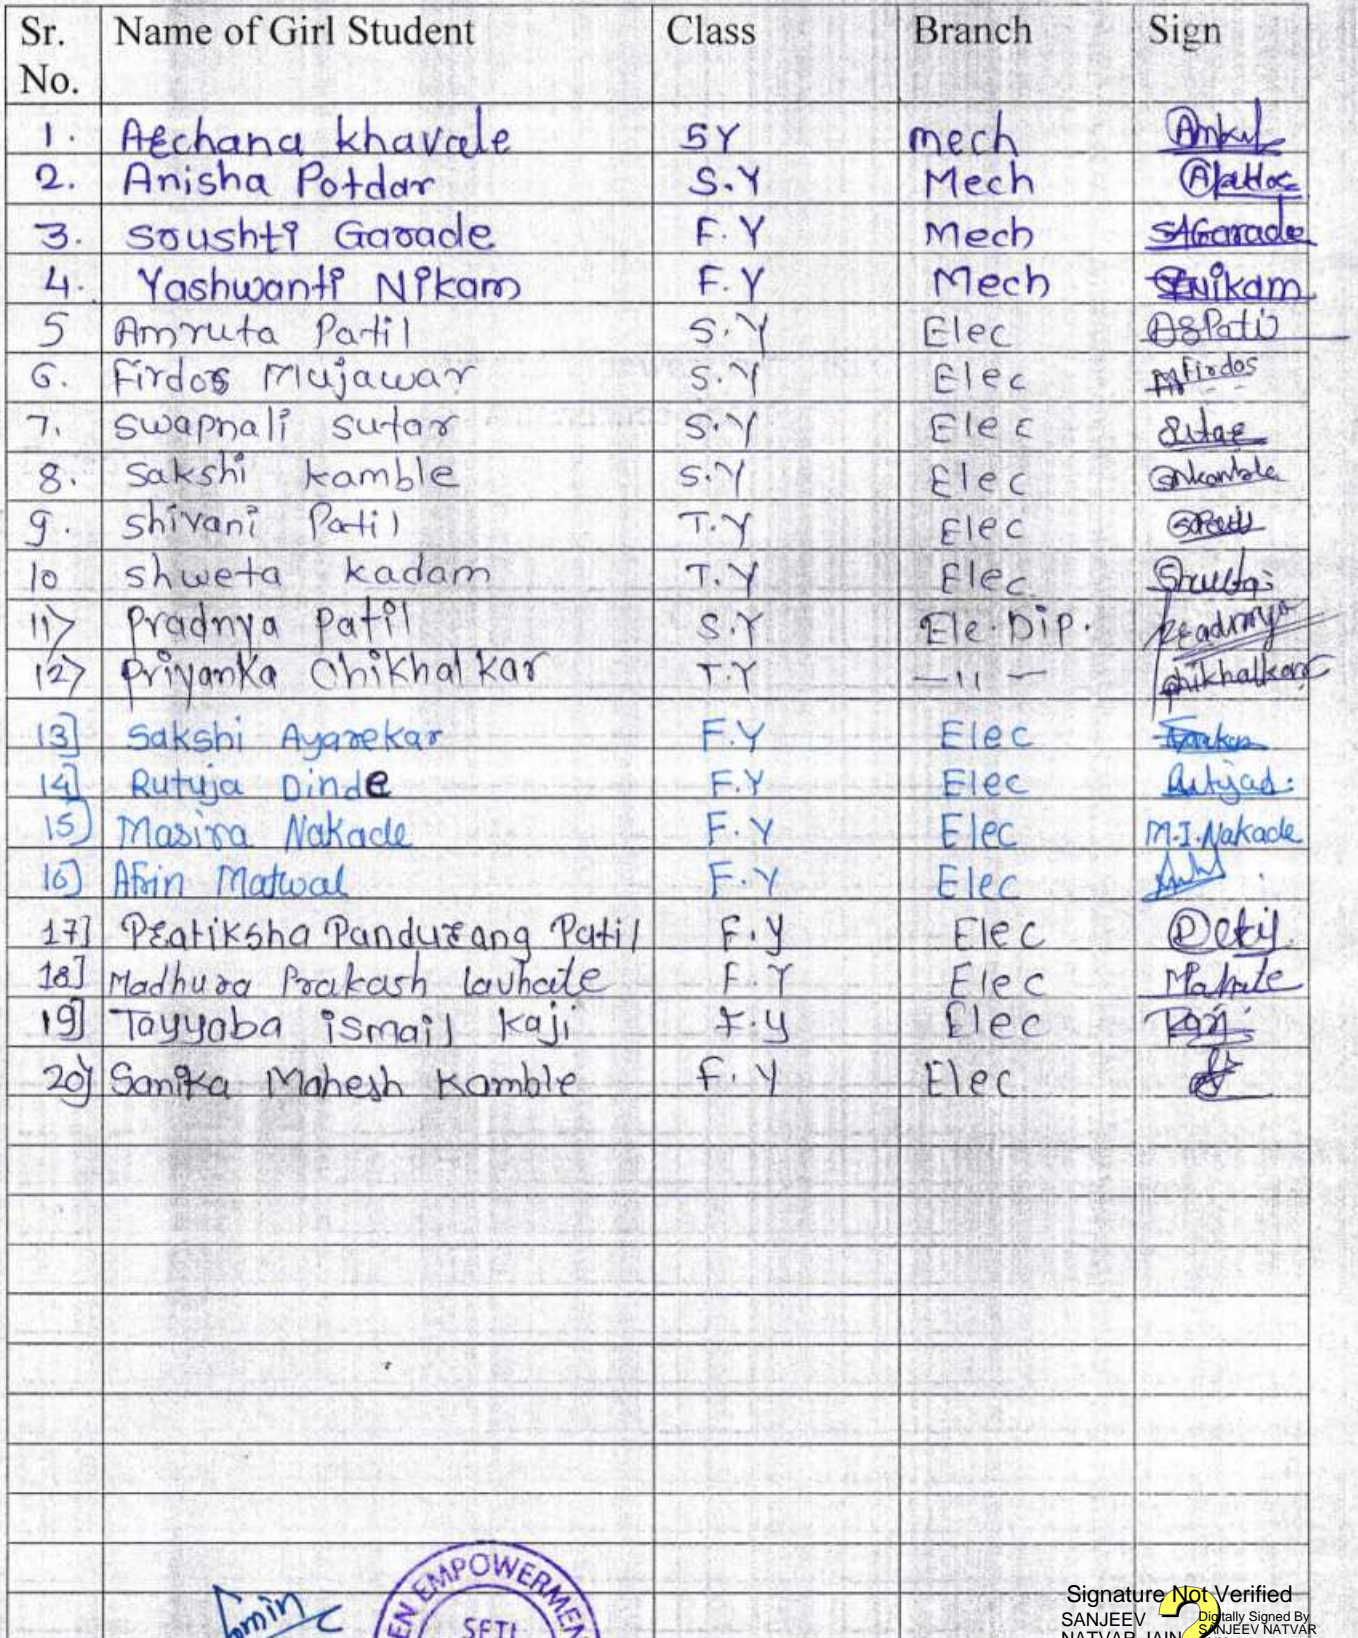 Sr. No. Name of Girl Student Class Branch Sign
1. Archana khavale SY mech
2. Anisha Potdar S.Y Mech
3. Srushti Garade F.Y Mech SAGarade
4. Yashwanti Nikam F.Y Mech Nikam
5 Amruta Patil S.Y Elec ASPatil
6. Firdos Mujawar S.Y Elec Firdos
7. swapnali sutar S.Y Elec Sutar
8. sakshi kamble S.Y Elec Snkamble
9. shivani Patil T.Y Elec
10 shweta kadam T.Y Elec Shweta
11) Pradnya Patil S.Y Ele.Dip. Pradnya
12) Priyanka Chikhalkar T.Y —11— chikhalkar
13] Sakshi Ayarekar F.Y Elec
14] Rutuja Dinde F.Y Elec Rutujad.
15] Masira Nakade F.Y Elec M.I.Nakade
16] Afrin Matwal F.Y Elec
17] Pratiksha Pandurang Patil F.Y Elec
18] Madhura Prakash lavhate F.Y Elec
19] Tayyaba ismail kaji F.Y Elec
20] Sanika Mahesh Kamble F.Y Elec
EN EMPOWERMEN
SETI
Signature Not Verified
SANJEEV
NATVAR JAIN
Digitally Signed By
SANJEEV NATVAR